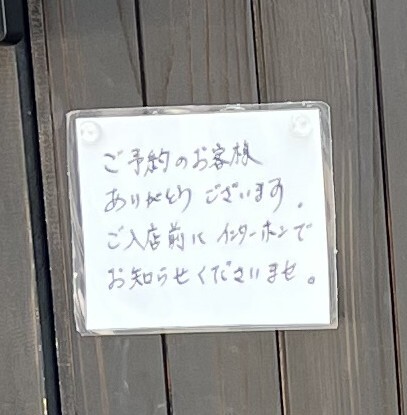 ご予約のお客様
ありがとうございます。
ご入店前に インターホンで
お知らせくださいませ。